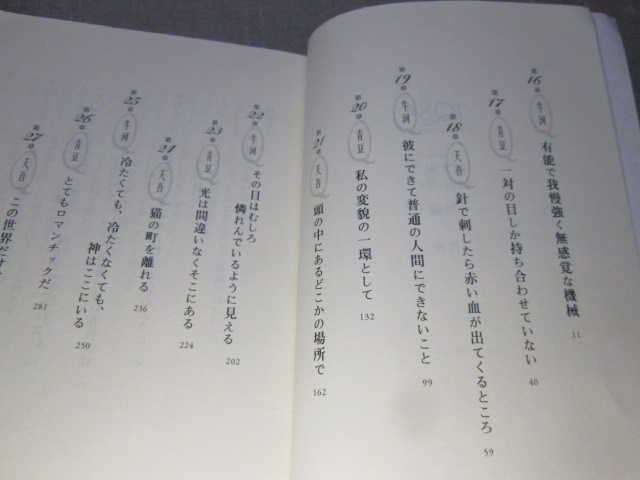 第16章 牛河 有能で我慢強く無感覚な機械 11
第17章 青豆 一対の目しか持ち合わせていない 40
第18章 天吾 針で刺したら赤い血が出てくるところ 59
第19章 牛河 彼にできて普通の人間にできないこと 99
第20章 青豆 私の変貌の一環として 132
第21章 天吾 頭の中にあるどこかの場所で 162
第22章 牛河 その目はむしろ
憐れんでいるように見える 202
第23章 青豆 光は間違いなくそこにある 224
第24章 天吾 猫の町を離れる 236
第25章 牛河 冷たくても、冷たくなくても、
神はここにいる 250
第26章 青豆 とてもロマンチックだ 281
第27章 天吾 この世界だけ